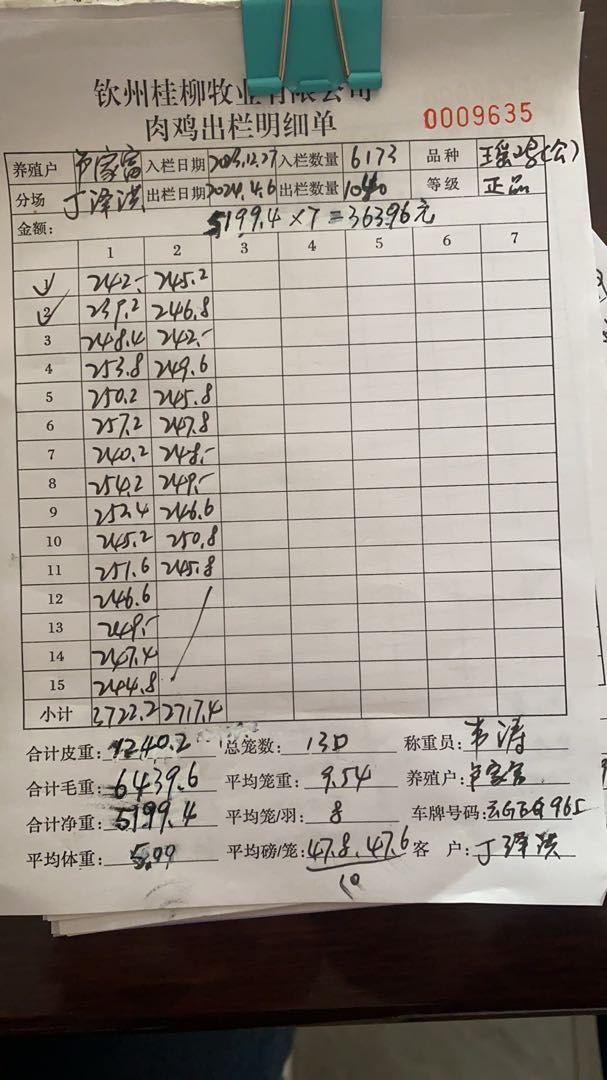 钦州桂柳牧业有限公司
肉鸡出栏明细单
0009635
养殖户 韦家富 入栏日期 2023.12.27 入栏数量 6173 品种 瑶鸡(公)
分场 丁泽洪 出栏日期 2024.4.6 出栏数量 1040 等级 正品
金额: 5199.4×7=36396元
1 2 3 4 5 6 7
1 242.- 245.2
2 239.2 246.8
3 248.4 242.-
4 253.8 249.6
5 250.2 245.8
6 257.2 247.8
7 240.2 248.-
8 254.2 249.-
9 252.4 246.6
10 245.2 250.8
11 251.6 245.8
12 246.6
13 249.-
14 247.4
15 244.8
小计 3722.2 2717.4
合计皮重: 1240.2 总笼数: 130 称重员: 韦涛
合计毛重: 6439.6 平均笼重: 9.54 养殖户: 韦家富
合计净重: 5199.4 平均笼/羽: 8 车牌号码:
平均体重: 5.00 平均磅/笼: 47.8.47.6 客 户: 丁泽洪
10